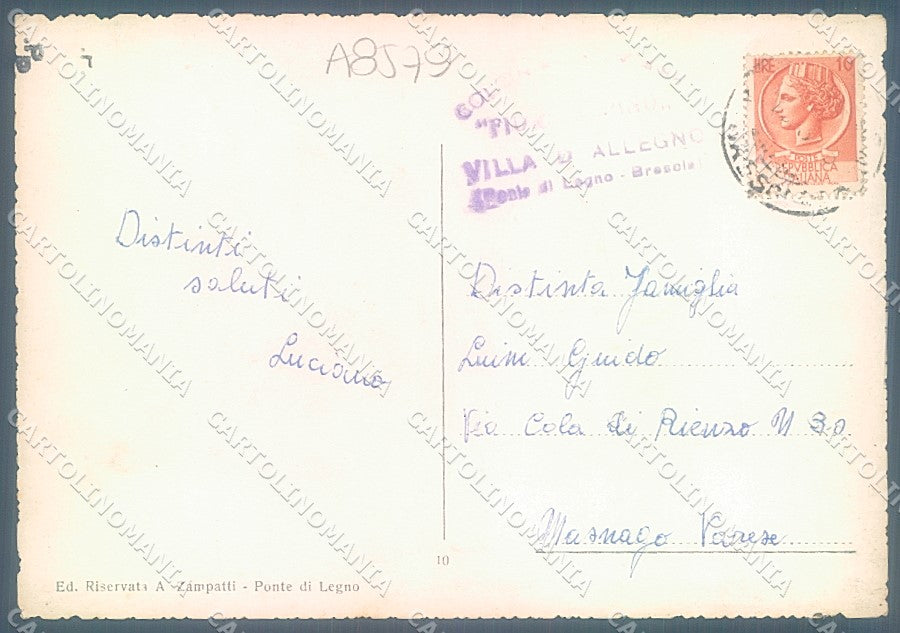 A8579
VILLA D'ALLEGNO
(Ponte di Legno - Brescia)
LIRE 10
POSTE
REPVBBLICA
ITALIANA
Distinti
saluti
Luciano
Distinta Famiglia
Luini Guido
Via Cola di Rienzo N 30
Masnago Varese
10
Ed. Riservata A. Zampatti - Ponte di Legno
CARTOLINOMANIA